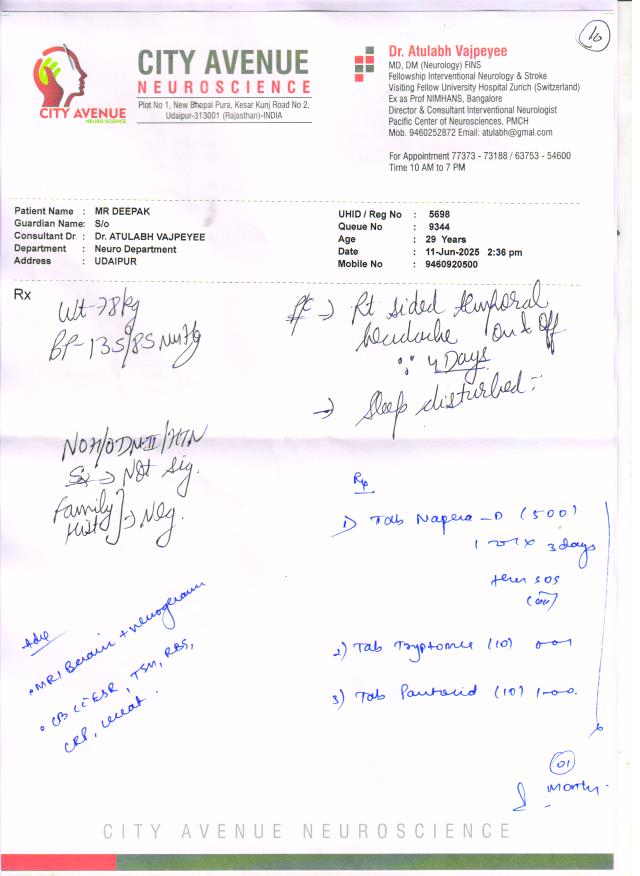 10
CITY AVENUE
NEURO SCIENCE
CITY AVENUE
NEUROSCIENCE
Plot No 1, New Bhopal Pura, Kesar Kunj Road No 2,
Udaipur-313001 (Rajasthan)-INDIA
Dr. Atulabh Vajpeyee
MD, DM (Neurology) FINS
Fellowship Interventional Neurology & Stroke
Visiting Fellow University Hospital Zurich (Switzerland)
Ex as Prof NIMHANS, Bangalore
Director & Consultant Interventional Neurologist
Pacific Center of Neurosciences, PMCH
Mob. 9460252872 Email: atulabh@gmal.com
For Appointment 77373 - 73188 / 63753 - 54600
Time 10 AM to 7 PM
Patient Name : MR DEEPAK
Guardian Name: S/o
Consultant Dr : Dr. ATULABH VAJPEYEE
Department : Neuro Department
Address : UDAIPUR
UHID / Reg No : 5698
Queue No : 9344
Age : 29 Years
Date : 11-Jun-2025 2:36 pm
Mobile No : 9460920500
Rx
Wt-78kg
BP-135/85 mmHg
→ Rt sided temporal
headache on & off
4 Days
→ Sleep disturbed
NOH/O DM-II/HTN
→ Not Sig.
Family
Hist } → Neg.
Adv
• MRI Brain + venogram
• CBC ESR, TSH, RBS,
CRP,
Rx
1) Tab (500)
x 3 days
then sos
2) Tab (10) 001
3) Tab (10) 1-00
01
month
CITY AVENUE NEUROSCIENCE